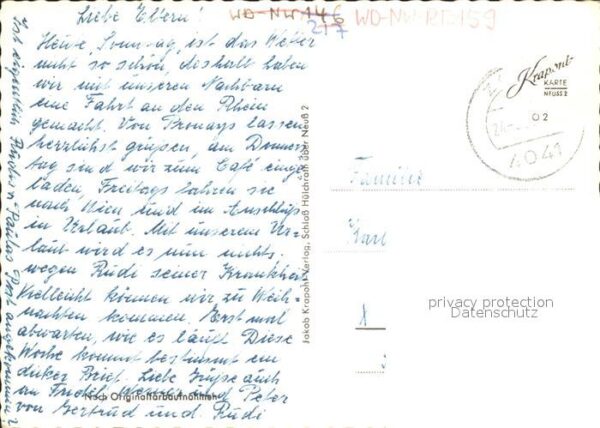 Liebe Eltern!
Heute, Sonntag, ist das Wetter
nicht so schön, deshalb haben
wir mit unseren Nachbarn
eine Fahrt an den Rhein
gemacht. Von lassen
herzlichst grüßen, am Donners-
tag sind wir zum Café einge-
laden, Freitags fahren sie
nach Wien und im Anschluß
in Urlaub. Mit unserem Ur-
laub wird es nun nichts,
wegen Rudi seiner Krankheit
Vielleicht können wir zu Weih-
nachten kommen. Erst mal
abwarten, wie es läuft Diese
Woche kommt bestimmt ein
dicker Brief. Liebe Grüße auch
an Friedel, Werner und Peter
von Gertrud und Rudi
Nach Originalfarbaufnahmen
Jakob Krapohl-Verlag, Schloß Hülchrath über Neuß 2
WD-NW-
217
WD-NW-RB159
Krapohl-
KARTE
NEUSS 2
02
4041
Familie
Karl
1
privacy protection
Datenschutz